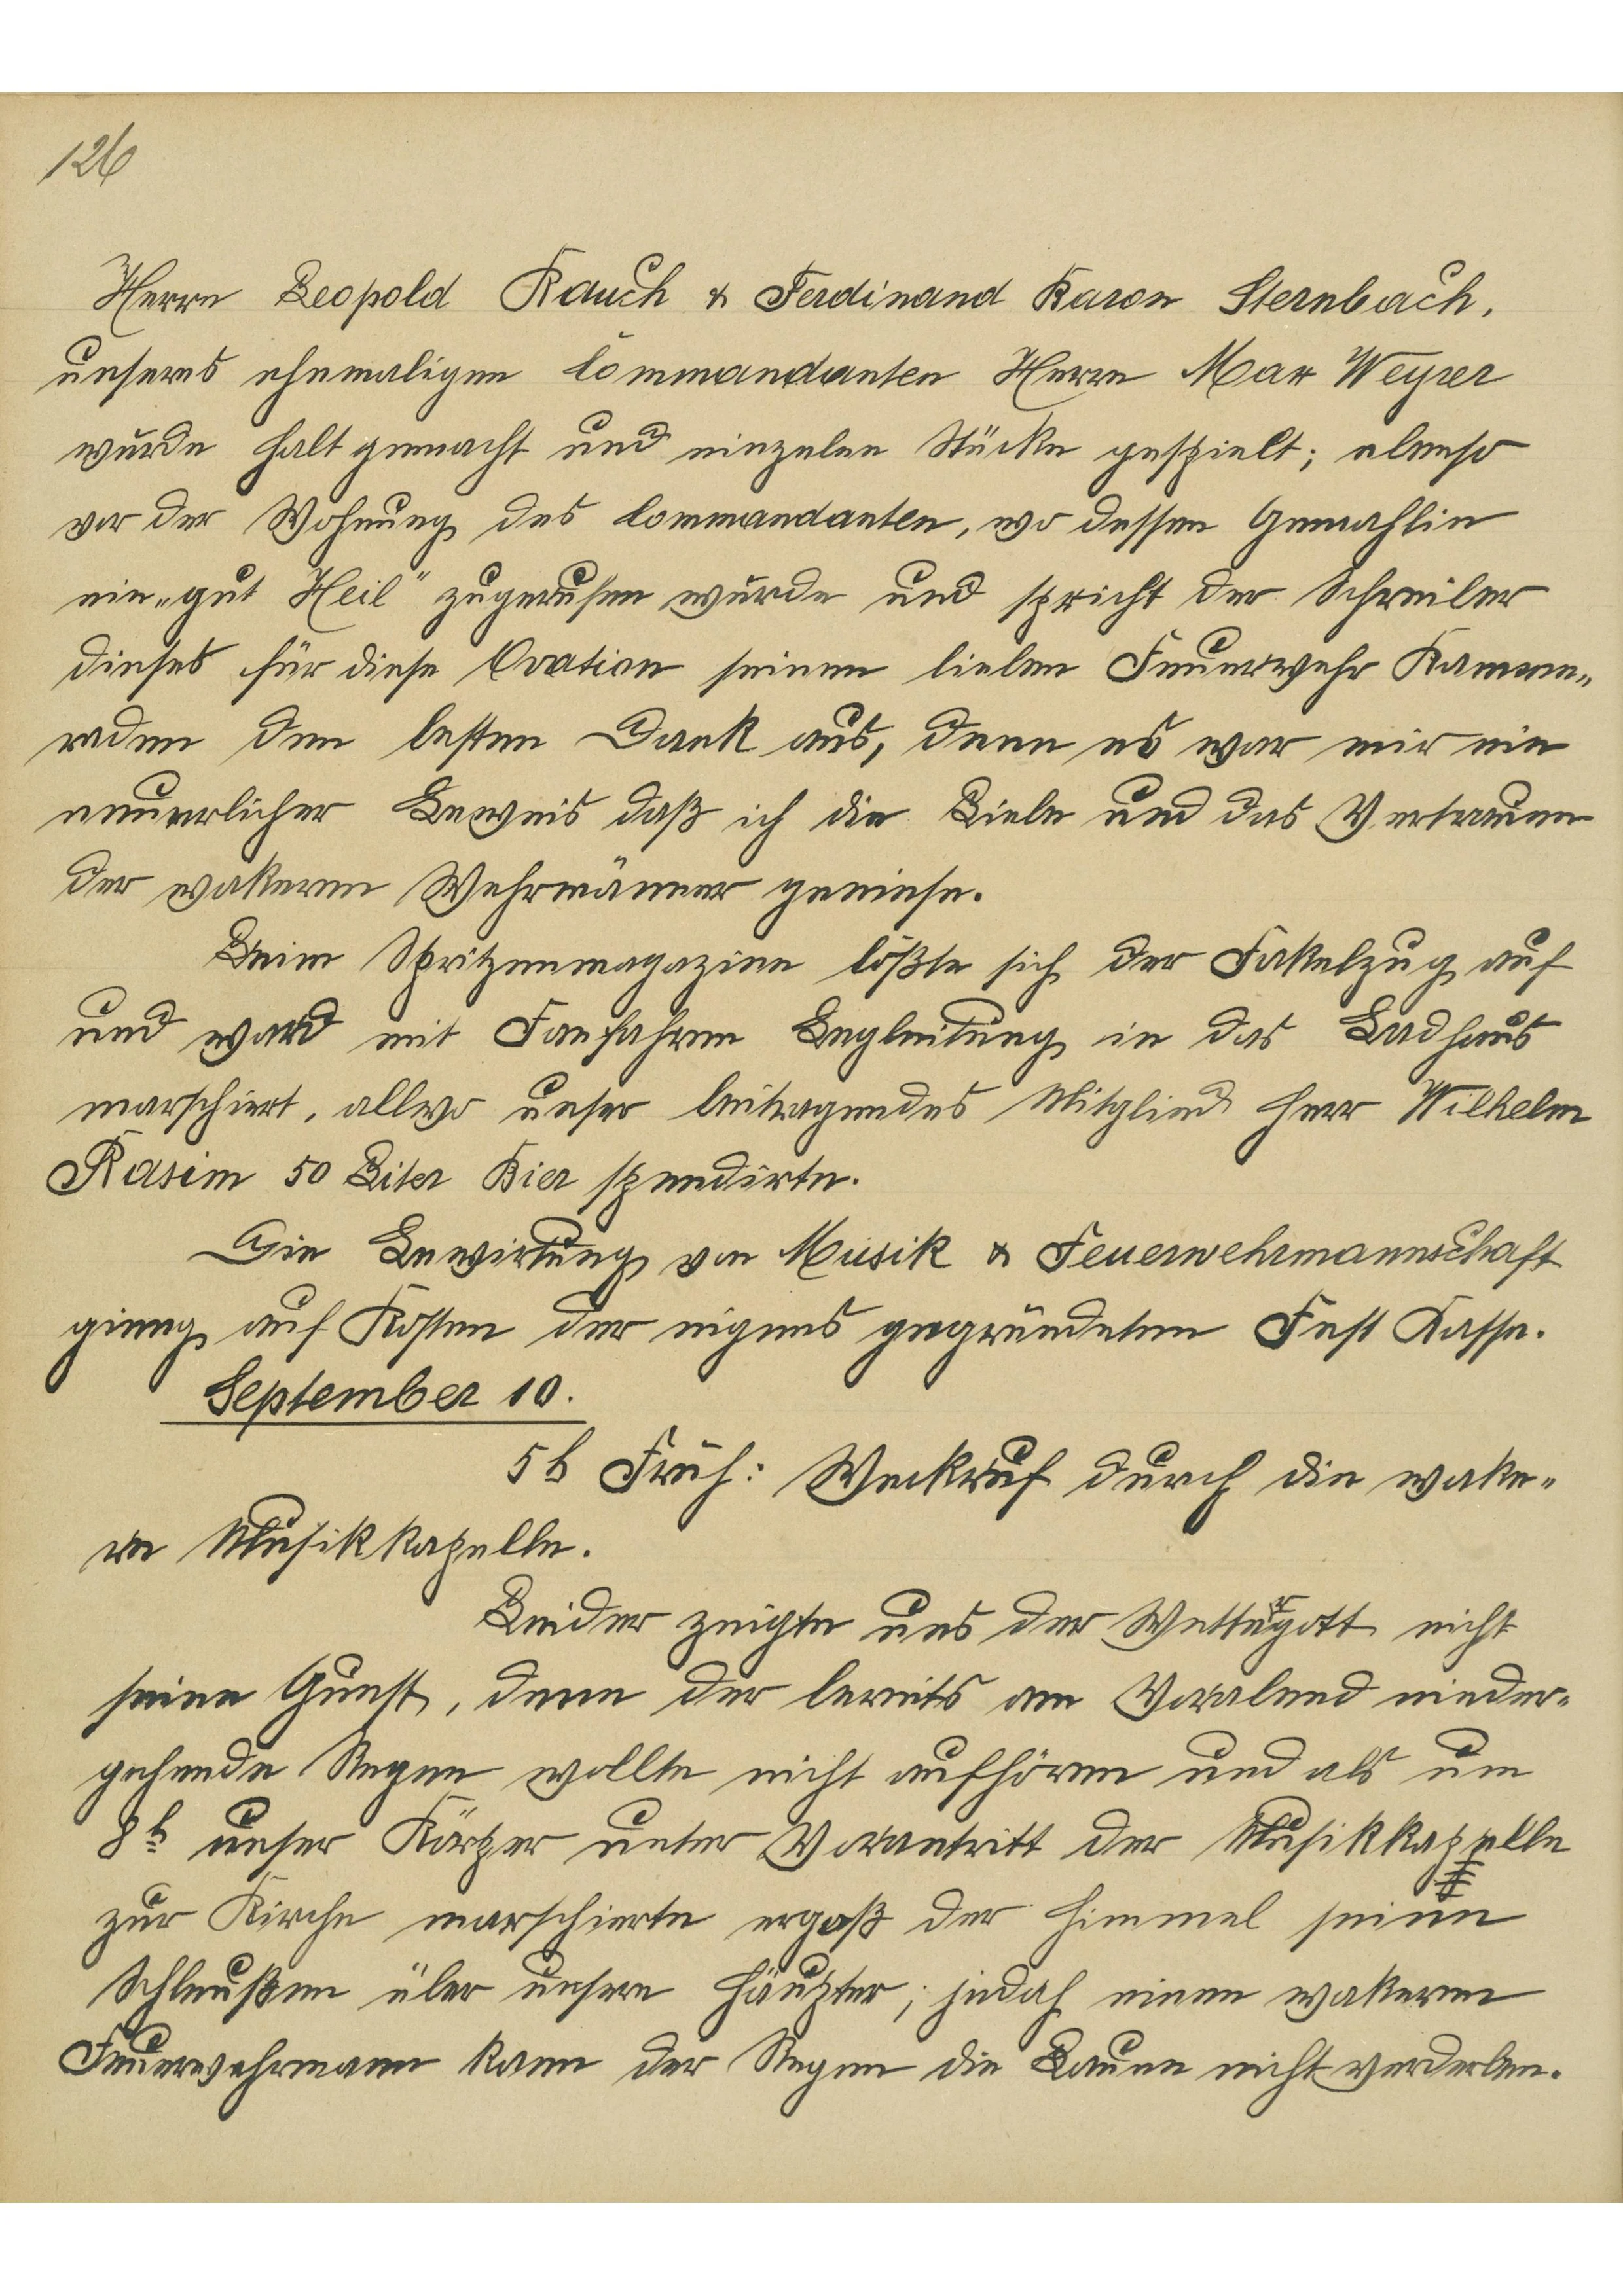 126
Herrn Leopold Rauch & Ferdinand Baron Sternbach,
unseres ehemaligen Commandanten Herrn Max Weyrer
wurde halt gemacht und einzelne Stücke gespielt; ebenso
vor der Wohnung des Commandanten, wo dessen Gemahlin
ein „gut Heil" zugerufen wurde und spricht der Schreiber
dieses für diese Ovation seinen lieben Feuerwehr Kamme-
raden den besten Dank aus, denn es war mir ein
neuerlicher Beweis daß ich die Liebe und das Vertrauen
der wakeren Wehrmänner geniese.
Beim Spritzenmagazine lößte sich der Fakelzug auf
und ward mit Fanfahren Begleitung in das Badhaus
marschiert, allwo unser beitragendes Mitglied Herr Wilhelm
Rasim 50 Liter Bier spendirte.
Die Bewirtung von Musik & Feuerwehrmannschaft
gieng auf Kosten der eigens gegründeten Fest Kasse.
September 10.
5h Früh: Weckruf durch die wake-
re Musikkapelle.
Leider zeigte uns der Wettergott nicht
seine Gunst, denn der bereits am Vorabend nieder-
gehende Regen wollte nicht aufhören und als um
8h unser Körper unter Vorantritt der Musikkapelle
zur Kirche marschierte ergoß der Himmel seine
Schleußen über unsere Häupter; jedoch einen wakeren
Feuerwehrmann kann der Regen die Laune nicht verderben.